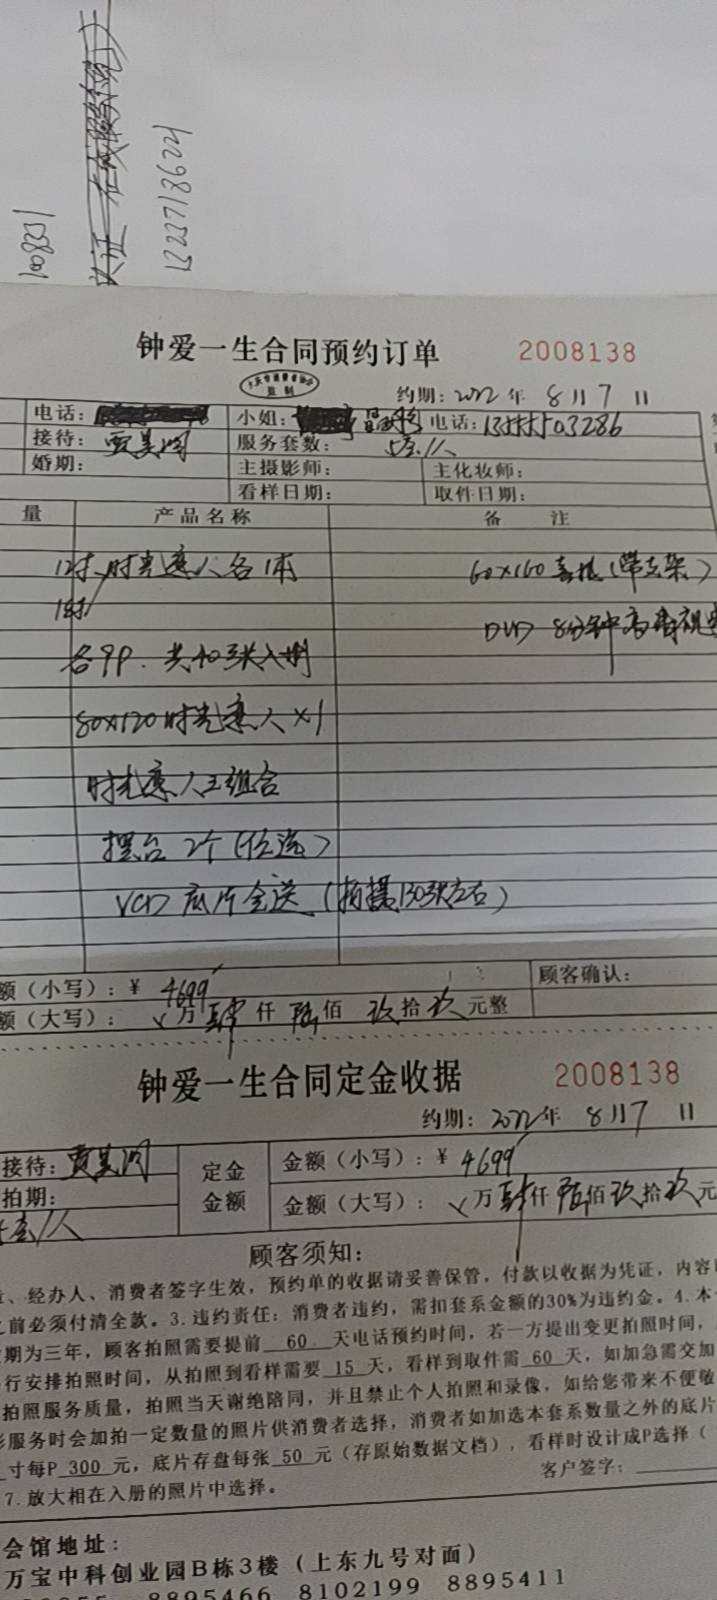 108801
13337186224
钟爱一生合同预约订单 2008138
监制
约期：2022年 8月7日
电话： 小姐： 电话：
接待：贾美润 服务套数：
婚期： 主摄影师： 主化妆师：
看样日期： 取件日期：
量 产品名称 备注
12寸 时光恋人各1本 60x160喜报（带支架）
18寸 DVD 8分钟高清视
各9P. 共40张入册
80x120时光恋人x1
时光恋人三组合
摆台 2个（任选）
VCD 底片全送（拍摄130张左右）
额（小写）：¥ 4699 顾客确认：
额（大写）： 万肆仟陆佰玖拾玖元整
钟爱一生合同定金收据 2008138
约期：2022年 8月7日
接待：贾美润 定金金额 金额（小写）：¥ 4699
拍期： 金额（大写）： 万肆仟陆佰玖拾玖元
顾客须知：
、经办人、消费者签字生效，预约单的收据请妥善保管，付款以收据为凭证，内容
之前必须付清全款。3.违约责任：消费者违约，需扣套系金额的30%为违约金。4.本
期为三年，顾客拍照需要提前 60 天电话预约时间，若一方提出变更拍照时间，
行安排拍照时间，从拍照到看样需要 15 天，看样到取件需 60 天，如加急需交加
拍照服务质量，拍照当天谢绝陪同，并且禁止个人拍照和录像，如给您带来不便敬
服务时会加拍一定数量的照片供消费者选择，消费者如加选本套系数量之外的底片
寸每P 300 元，底片存盘每张 50 元（存原始数据文档），看样时设计成P选择（
7.放大相在入册的照片中选择。 客户签字：
会馆地址：
万宝中科创业园B栋3楼（上东九号对面）
8895466 8102199 8895411